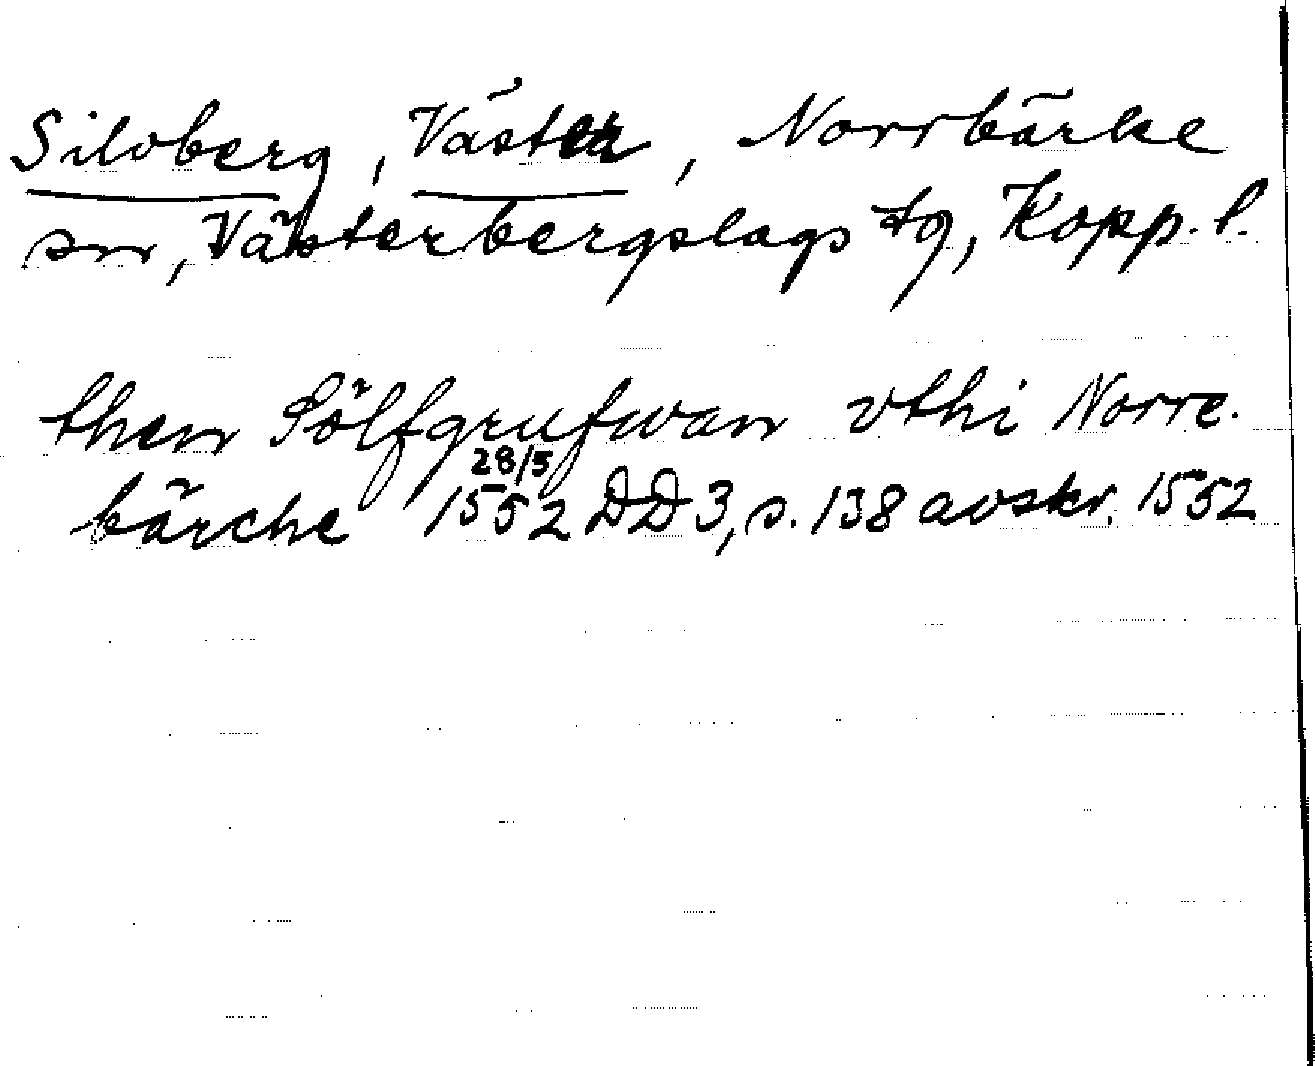 Silvberg, Väster, Norrbärke
sn, Västerbergslags tg, Kopp. l.
then Sölfgrufwan vthi Norre-
bärche 28/5 1552 DD 3, s. 138 avskr. 1552